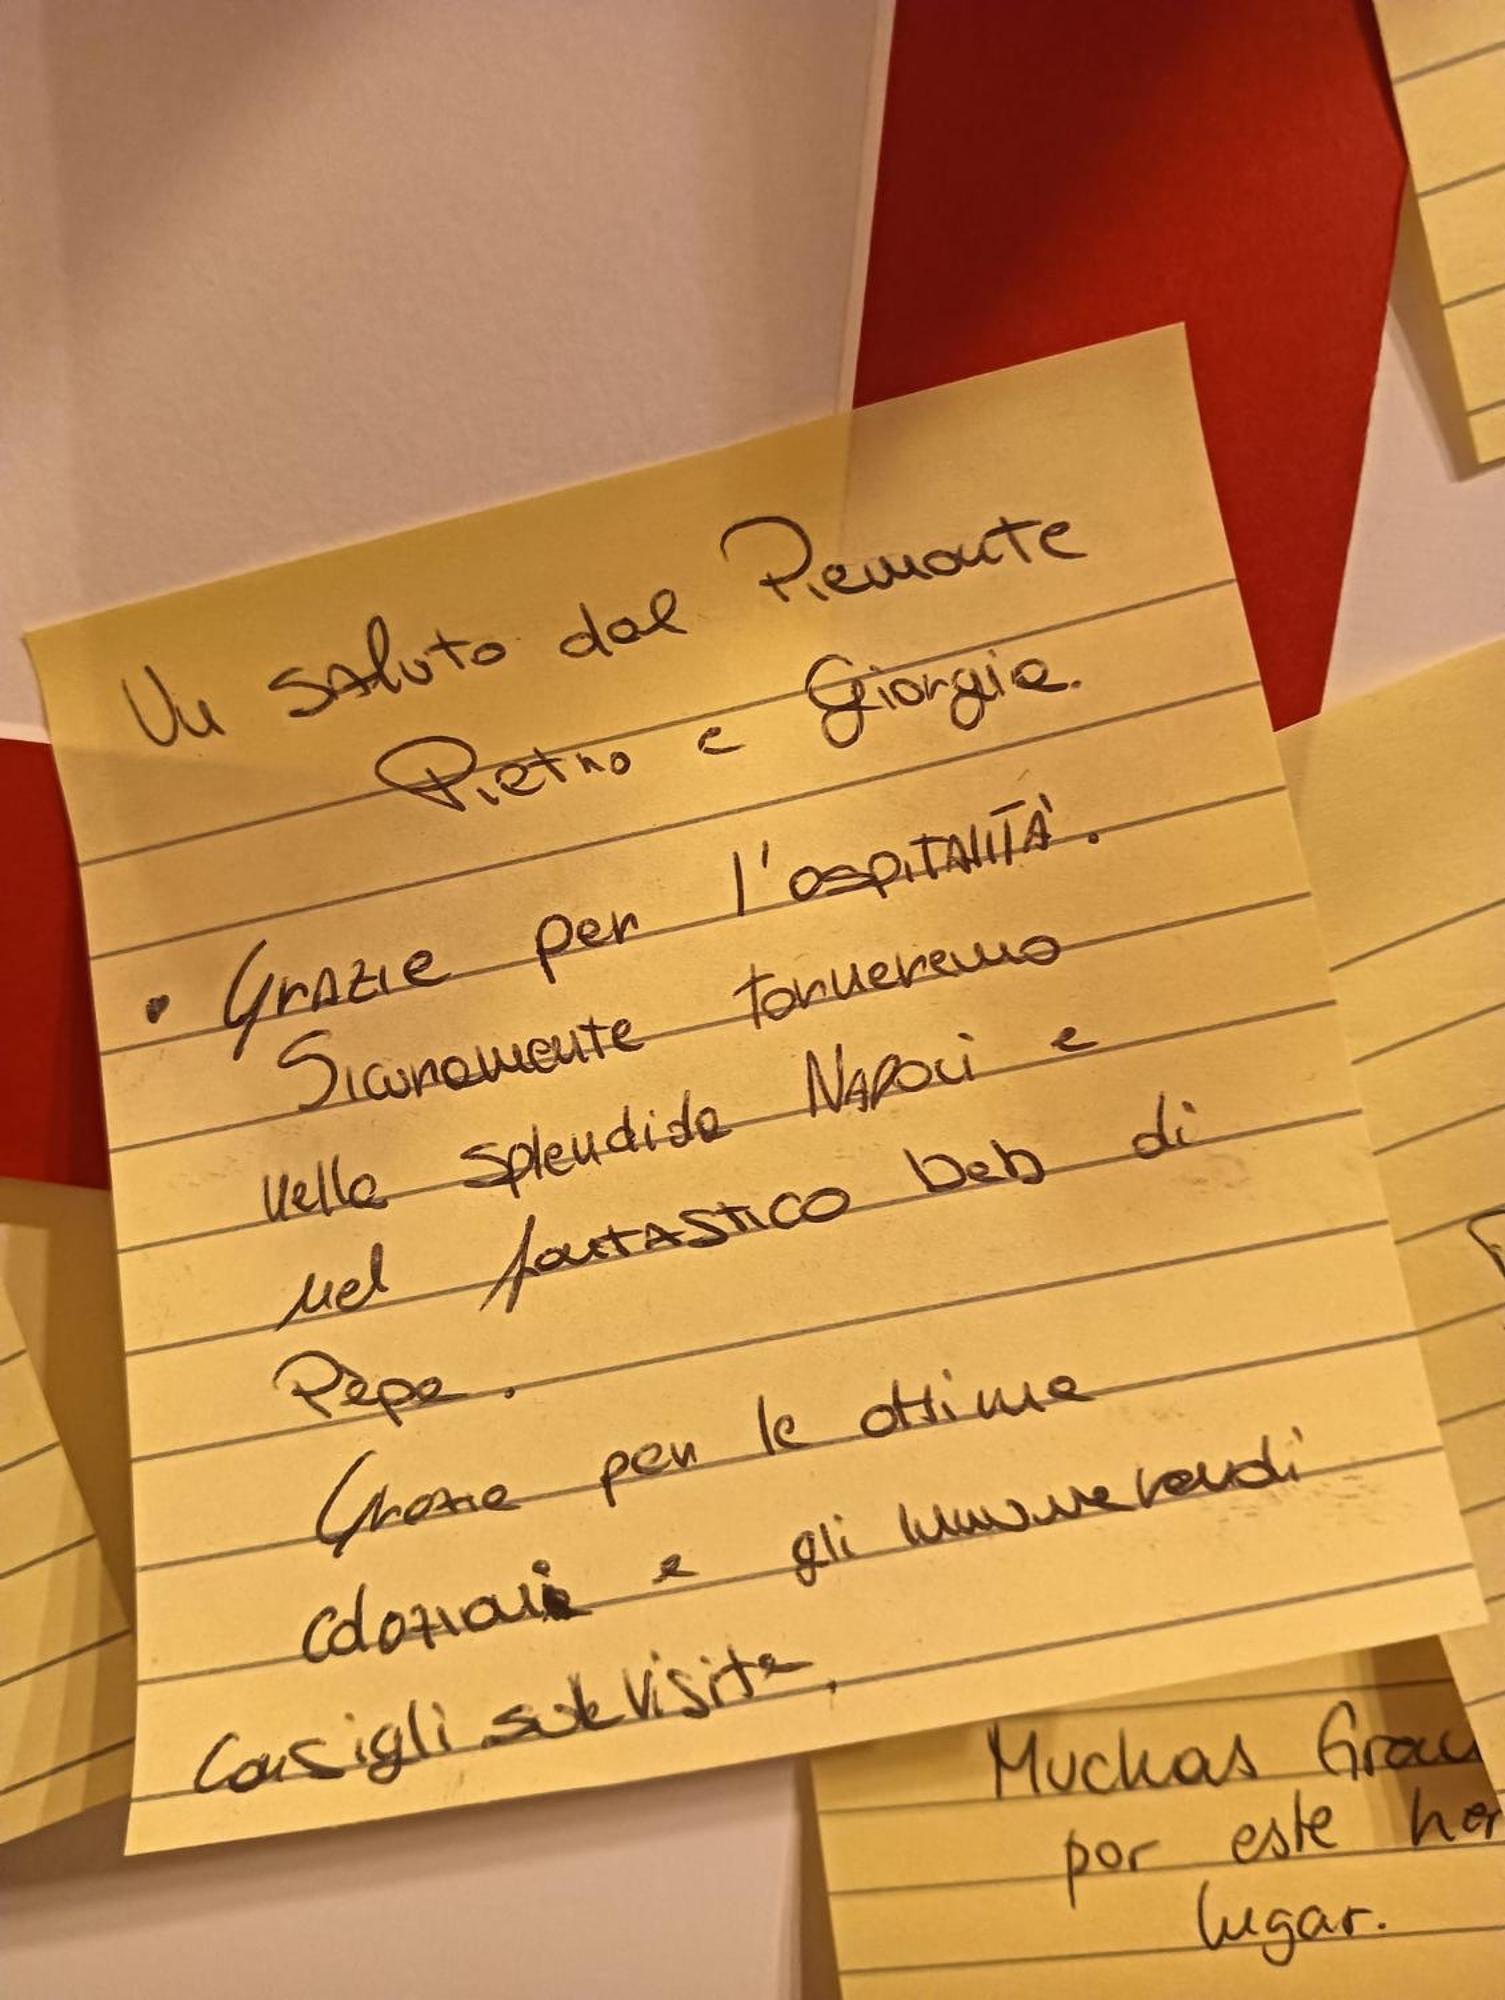 Un saluto dal Piemonte
Pietro e Giorgia.
• Grazie per l'ospitalità.
Sicuramente torneremo
nella splendida Napoli e
nel fantastico beb di
Pepe.
Grazie per le ottime
colazioni e gli innumerevoli
consigli sulle visite.
Muchas Grac
por este her
lugar.